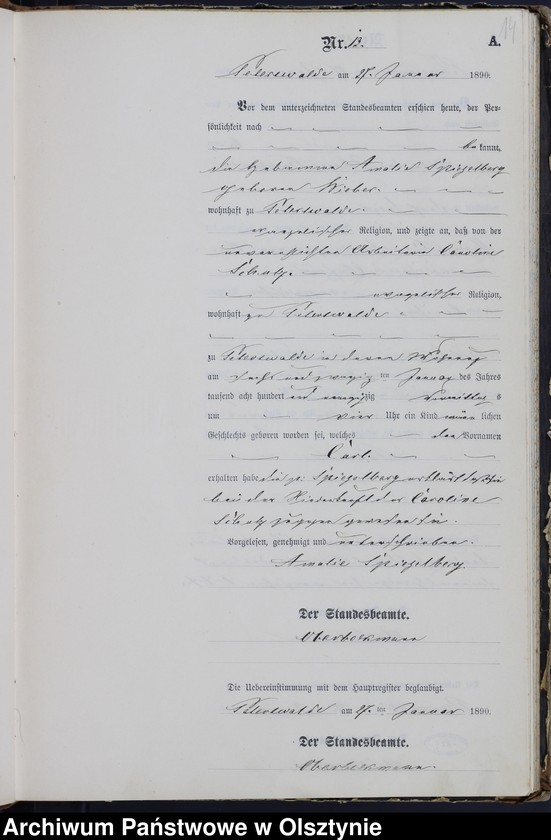 14
Nr. 13.
A.
Peterswalde am 27. Januar 1890.
Vor dem unterzeichneten Standesbeamten erschien heute, der Per-
sönlichkeit nach
bekannt,
die Hebamme Amalie Spiegelberg
geborene
wohnhaft zu Peterswalde
evangelischer Religion, und zeigte an, daß von der
unverehelichten Arbeiterin Caroline
Schatz
evangelischer Religion,
wohnhaft zu Peterswalde
zu Peterswalde in deren Wohnung
am sechs und zwanzig ten Januar des Jahres
tausend acht hundert und neunzig Vormittags
um vier Uhr ein Kind männlichen
Geschlechts geboren worden sei, welches den Vornamen
Carl.
erhalten habe die p. Spiegelberg erklärt daß sie
bei der Niederkunft der Caroline
Schatz zugegen gewesen sei.
Vorgelesen, genehmigt und unterschrieben.
Amalie Spiegelberg.
Der Standesbeamte.
Oberbeckmann
Die Uebereinstimmung mit dem Hauptregister beglaubigt.
Peterswalde am 27. ten Januar 1890.
Der Standesbeamte.
Oberbeckmann.
Archiwum Państwowe w Olsztynie